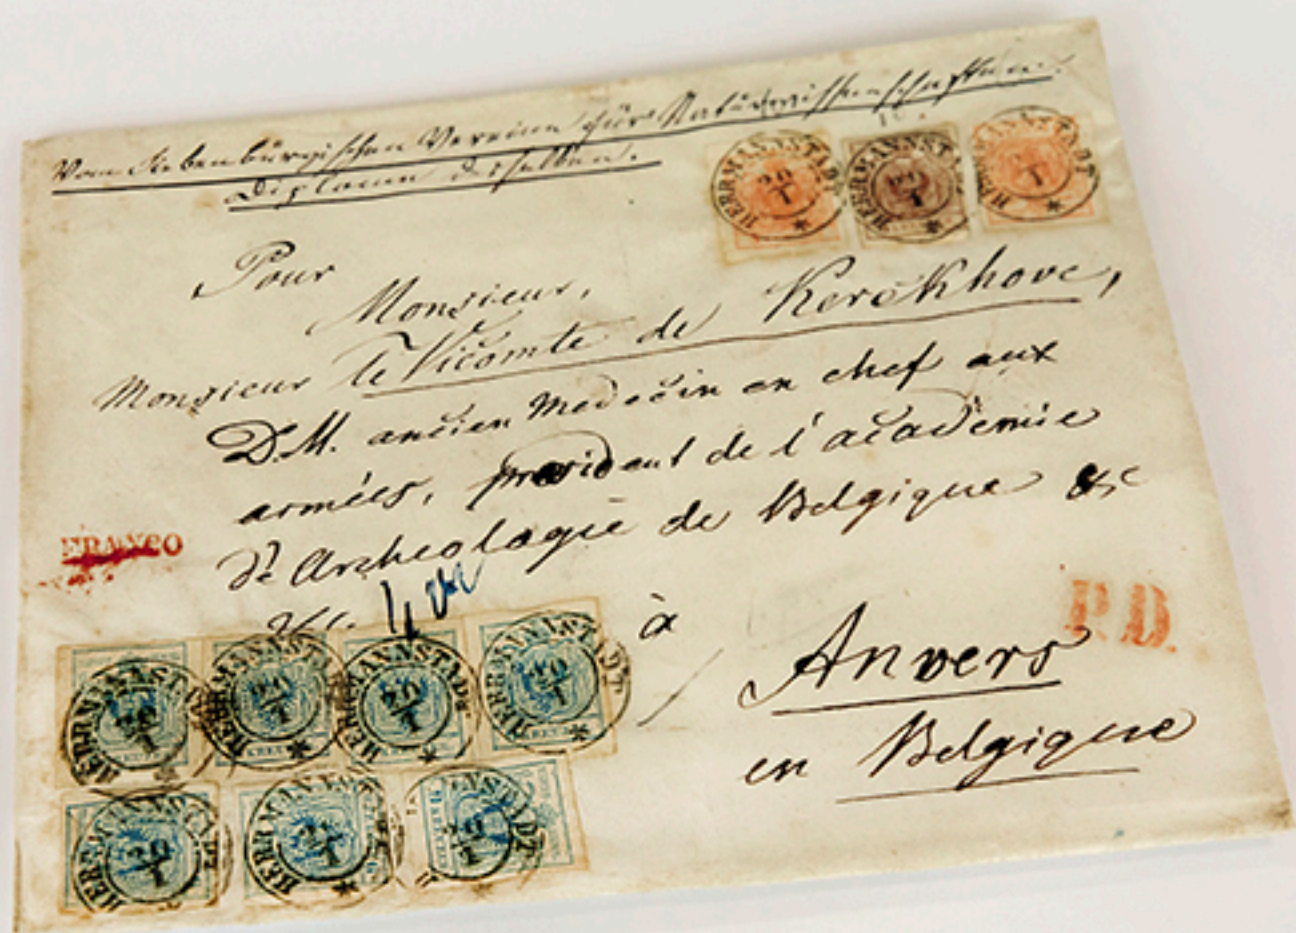 Vom Siebenbürgischen Vereine für Naturwissenschaften.
Diplom desselben.
HERRMANNSTADT 20/1
HERRMANNSTADT 20/1
HERRMANNSTADT 20/1
Pour
Monsieur,
Monsieur le Vicomte de Kerckhove,
D.M. ancien Medecin en chef aux
armées, président de l'académie
d'Archeologie de Belgique &c
FRANCO
à
P.D.
Anvers
en Belgique
HERRMANNSTADT 20/1
HERRMANNSTADT 20/1
HERRMANNSTADT 20/1
HERRMANNSTADT 20/1
HERRMANNSTADT 20/1
HERRMANNSTADT 20/1
HERRMANNSTADT 20/1